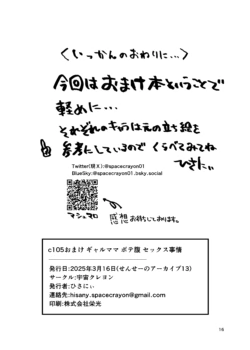 〈いっかんのおわりに…〉
今回はおまけ本ということで
軽めに…
それぞれのキャラは元の立ち絵を
参考にしているので くらべてみてね
ひさたぃ
Twitter(現X):@spacecrayon01
BlueSky:@spacecrayon01.bsky.social
マシュマロ
感想 お待ちしております。
c105おまけ ギャルママ ボテ腹 セックス事情
発行日:2025年3月16日(せんせーのアーカイブ13)
サークル:宇宙クレヨン
発行者:ひさにぃ
連絡先:hisary.spacecrayon@gmail.com
印刷:株式会社栄光
16